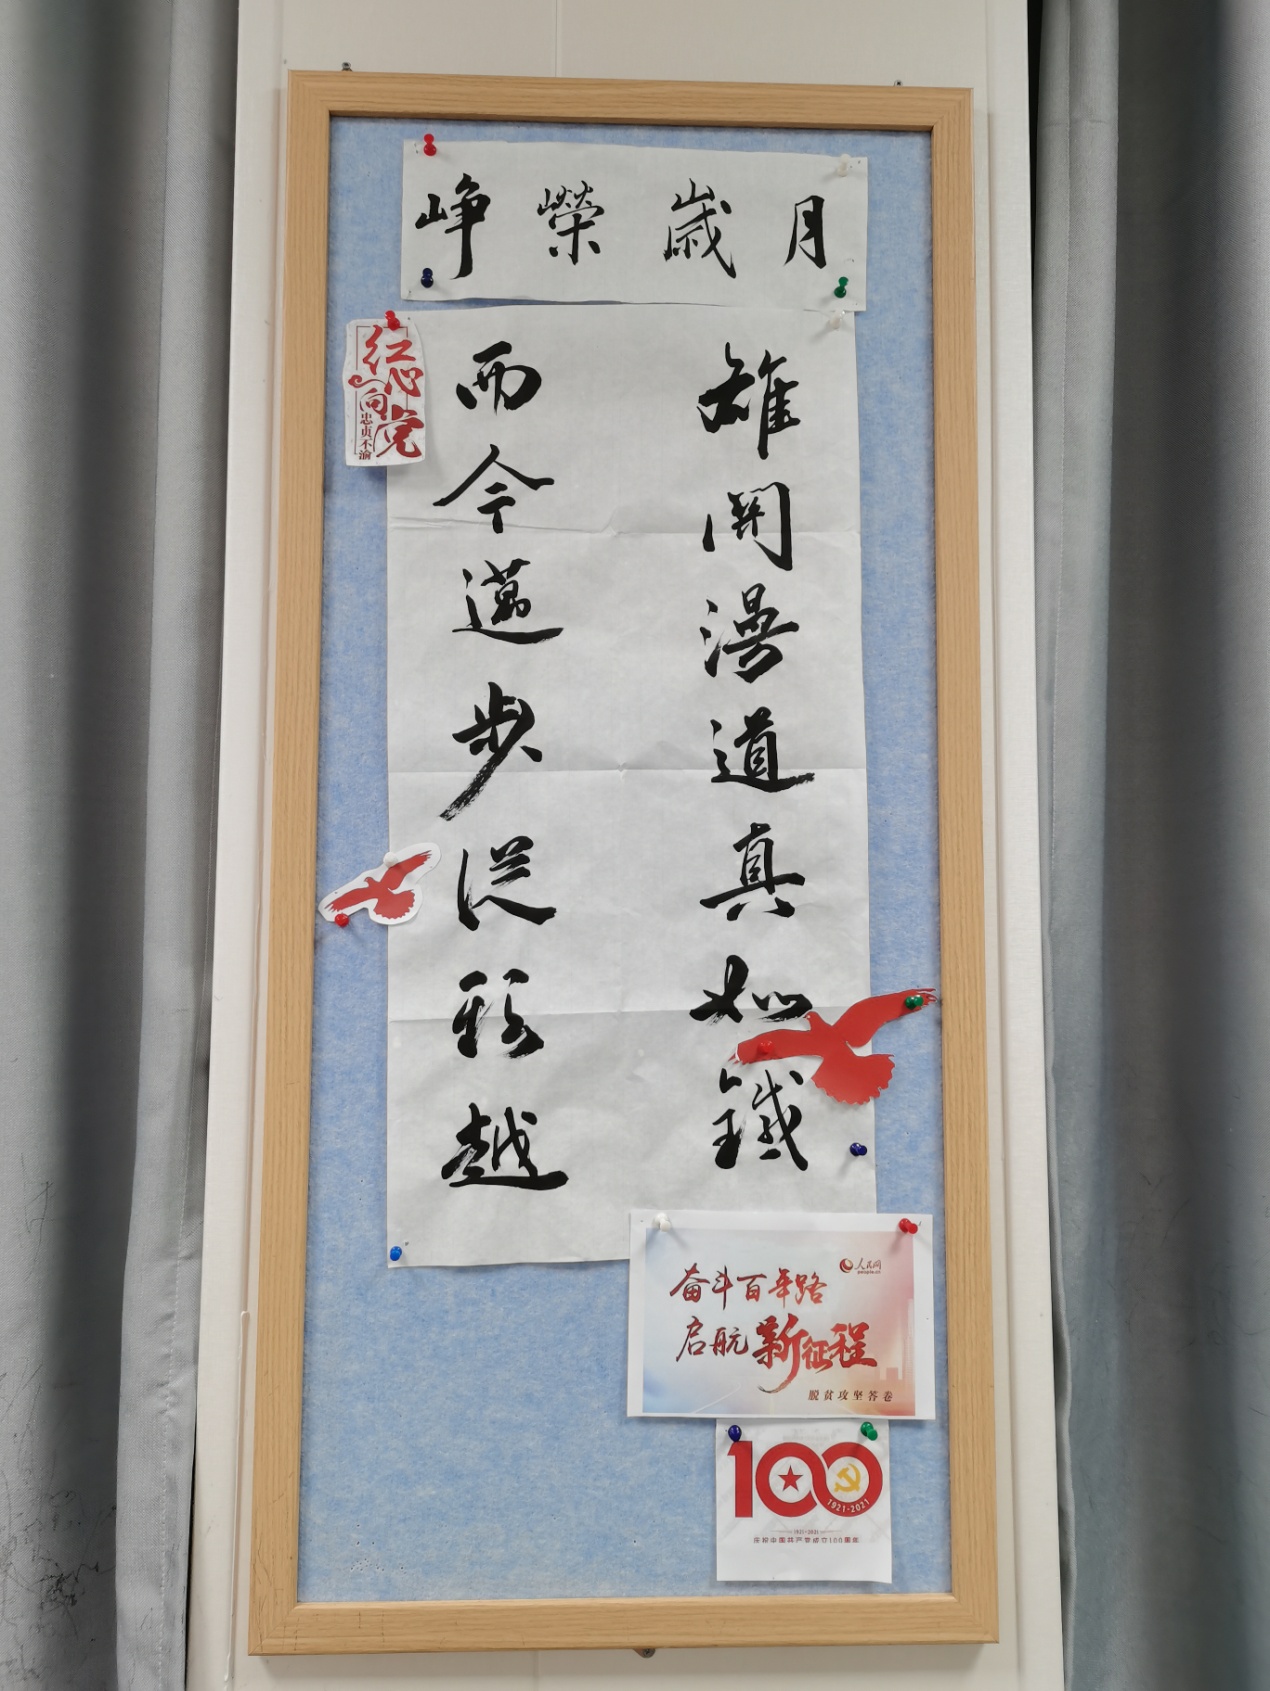 峥嶸歲月
雄關漫道真如鐵
而今邁步從頭越
红心向党
忠贞不渝
人民网
people.cn
奋斗百年路
启航新征程
脱贫攻坚答卷
100
1921-2021
1921-2021
庆祝中国共产党成立100周年